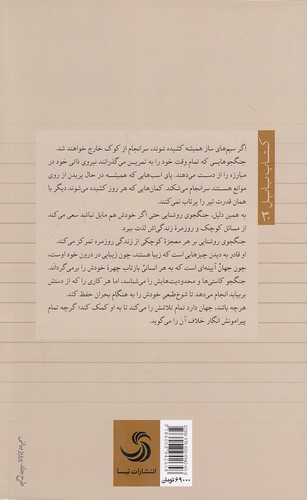 اگر سیم‌های ساز همیشه کشیده شوند، سرانجام از کوک خارج خواهند شد.
جنگجوهایی که تمام وقت خود را به تمرین می‌گذرانند نیروی ذاتی خود در
مبارزه را از دست می‌دهند. پای اسب‌هایی که همیشه در حال پریدن از روی
موانع هستند سرانجام می‌شکند. کمان‌هایی که هر روز کشیده می‌شوند دیگر با
همان قدرت تیر را پرتاب نمی‌کنند.
به همین دلیل، جنگجوی روشنایی حتی اگر خودش هم مایل نباشد سعی می‌کند
از مسائل کوچک و روزمرهٔ زندگی‌اش لذت ببرد.
جنگجوی روشنایی بر هر معجزهٔ کوچکی از زندگی روزمره تمرکز می‌کند.
او قادر به دیدن چیزهایی است که زیبا هستند، چون زیبایی در درون خود اوست،
چون جهان آیینه‌ای است که به هر انسانی بازتاب چهرهٔ خودش را برمی‌گرداند.
جنگجو کاستی‌ها و محدودیت‌هایش را می‌شناسد، اما هر کاری را که از دستش
بربیاید انجام می‌دهد تا شوخ‌طبعی خودش را به هنگام بحران حفظ کند.
هرچه باشد، جهان دارد تمام تلاشش را می‌کند تا به او کمک کند؛ گرچه تمام
پیرامونش انگار خلاف آن را می‌گوید.
کتاب نیابل ۲:
طرح جلد: پرویز بیانی
انتشارات تیسا
۶۹۰۰۰ تومان